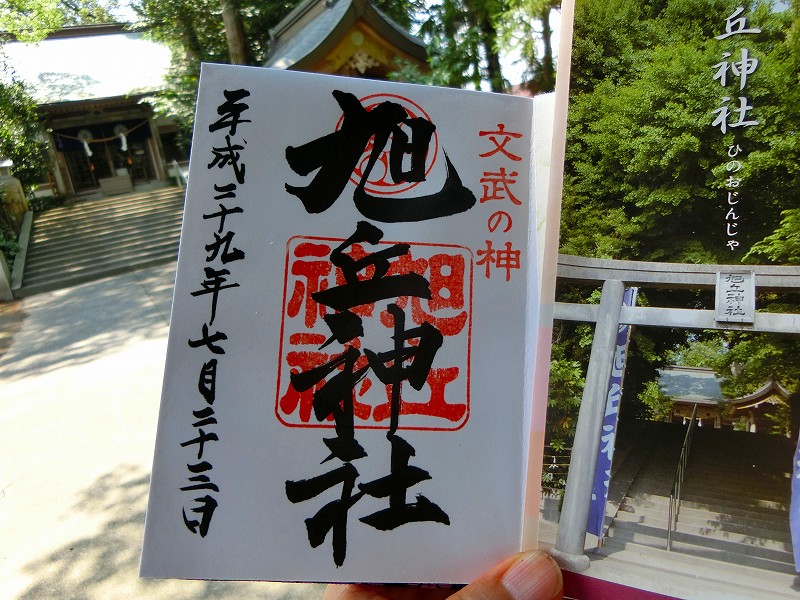 文武の神
旭丘神社
旭丘
神社
平成二十九年七月二十三日
丘神社
ひのおじんじゃ
旭丘神社